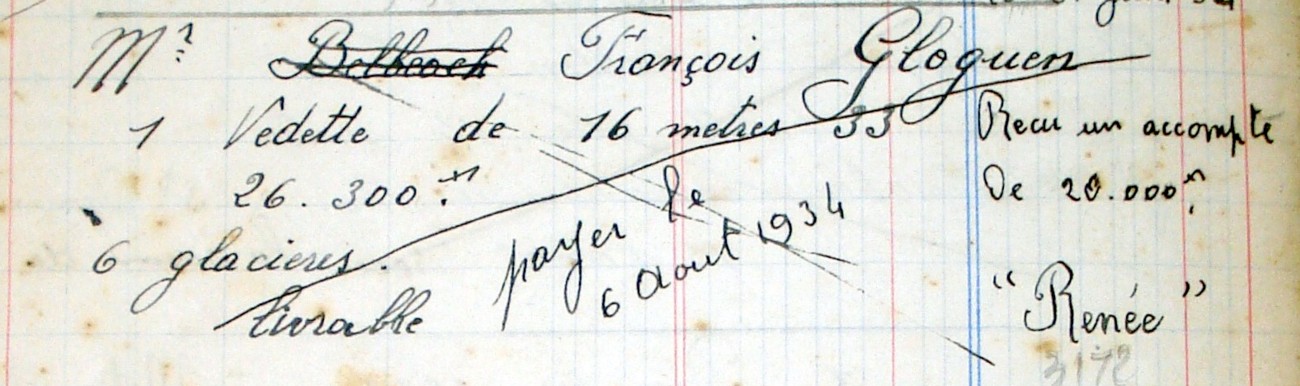 Mr François Gloguen
1 Vedette de 16 metres 33
26.300 frs
6 glacieres.
livrable
payer le
6 Aout 1934
Recu un accompte
De 20.000 frs
"Renée"
3172